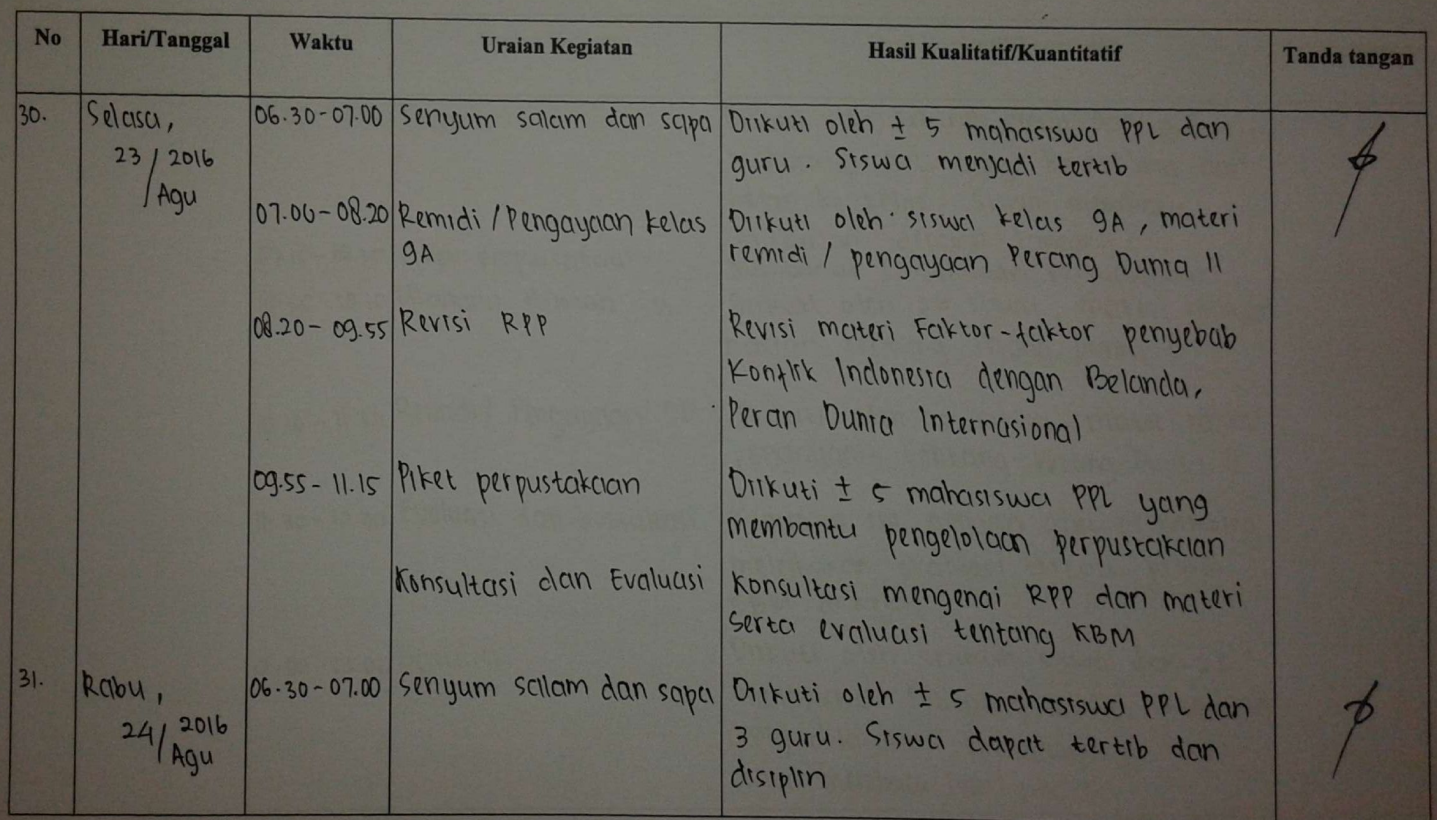 No Hari/Tanggal Waktu Uraian Kegiatan Hasil Kualitatif/Kuantitatif Tanda tangan
30. Selasa, 06.30-07.00 Senyum salam dan sapa Diikuti oleh ± 5 mahasiswa PPL dan
23/2016 guru. Siswa menjadi tertib
Agu
07.00-08.20 Remidi/Pengayaan kelas Diikuti oleh siswa kelas 9A, materi
9A remidi / pengayaan Perang Dunia II
08.20-09.55 Revisi RPP Revisi materi Faktor-faktor penyebab
Konflik Indonesia dengan Belanda,
Peran Dunia Internasional
09.55-11.15 Piket perpustakaan Diikuti ± 5 mahasiswa PPL yang
membantu pengelolaan perpustakaan
Konsultasi dan Evaluasi Konsultasi mengenai RPP dan materi
serta evaluasi tentang KBM
31. Rabu, 06.30-07.00 Senyum salam dan sapa Diikuti oleh ± 5 mahasiswa PPL dan
24/2016 3 guru. Siswa dapat tertib dan
Agu disiplin